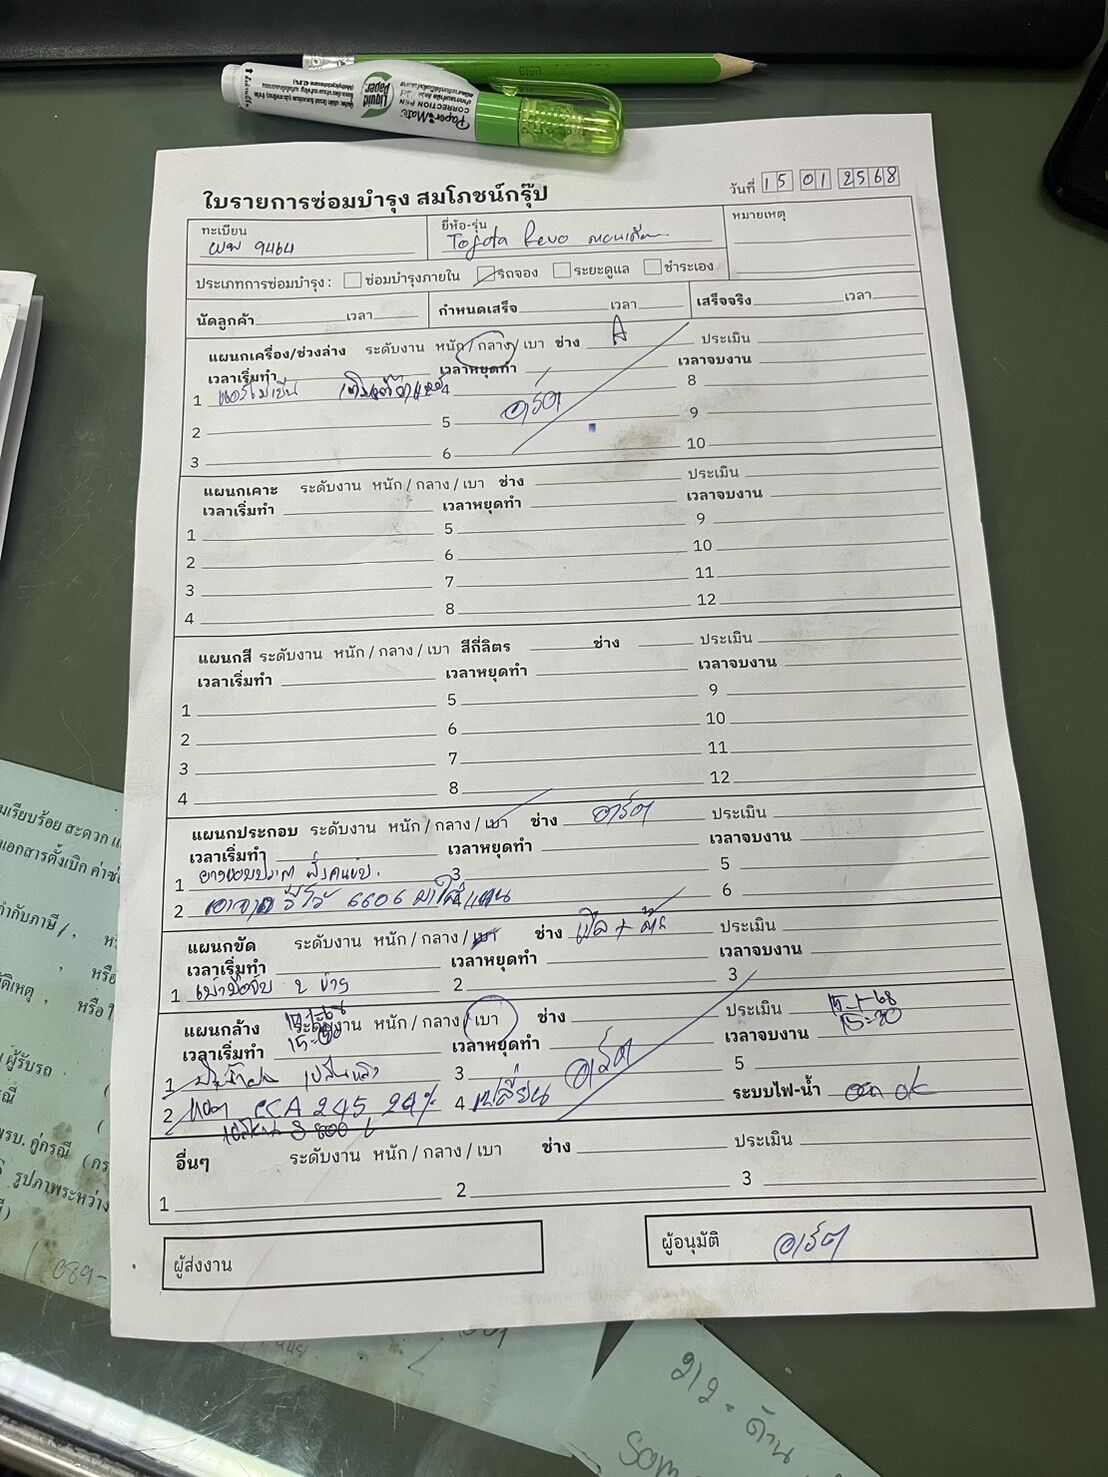 Paper Mate
CORRECTION PEN
Liquid Paper
ใบรายการซ่อมบำรุง สมโภชน์กรุ๊ป
วันที่ 15 01 2568
ทะเบียน
9464
ยี่ห้อ-รุ่น
Toyota Revo ตอนเดียว
หมายเหตุ
ประเภทการซ่อมบำรุง : ซ่อมบำรุงภายใน รถจอง ระยะดูแล ชำระเอง
นัดลูกค้า เวลา กำหนดเสร็จ เวลา เสร็จจริง เวลา
แผนกเครื่อง/ช่วงล่าง ระดับงาน หนัก / กลาง / เบา ช่าง A ประเมิน
เวลาเริ่มทำ เวลาหยุดทำ เวลาจบงาน
1 แอร์ไม่เย็น 4 8
2 5 อาร์ต 9
3 6 10
แผนกเคาะ ระดับงาน หนัก / กลาง / เบา ช่าง ประเมิน
เวลาเริ่มทำ เวลาหยุดทำ เวลาจบงาน
1 5 9
2 6 10
3 7 11
4 8 12
แผนกสี ระดับงาน หนัก / กลาง / เบา สีกี่ลิตร ช่าง ประเมิน
เวลาเริ่มทำ เวลาหยุดทำ เวลาจบงาน
1 5 9
2 6 10
3 7 11
4 8 12
แผนกประกอบ ระดับงาน หนัก / กลาง / เบา ช่าง อาร์ต ประเมิน
เวลาเริ่มทำ เวลาหยุดทำ เวลาจบงาน
1 ฝั่งคนขับ 3 5
2 เอาจาก รีโว้ 6606 มาใส่แทน 4 6
แผนกขัด ระดับงาน หนัก / กลาง / เบา ช่าง ประเมิน
เวลาเริ่มทำ เวลาหยุดทำ เวลาจบงาน
1 เบ้ามือจับ 2 ข้าง 2 3
แผนกล้าง ระดับงาน หนัก / กลาง / เบา ช่าง ประเมิน 15-1-68
เวลาเริ่มทำ เวลาหยุดทำ เวลาจบงาน 15:30
1 เปลี่ยนแล้ว 3 อาร์ต 5
2 CCA 245 24% 4 เปลี่ยน ระบบไฟ-น้ำ ok
อื่นๆ ระดับงาน หนัก / กลาง / เบา ช่าง ประเมิน
1 2 3
ผู้ส่งงาน
ผู้อนุมัติ อาร์ต
212 - ด้าน